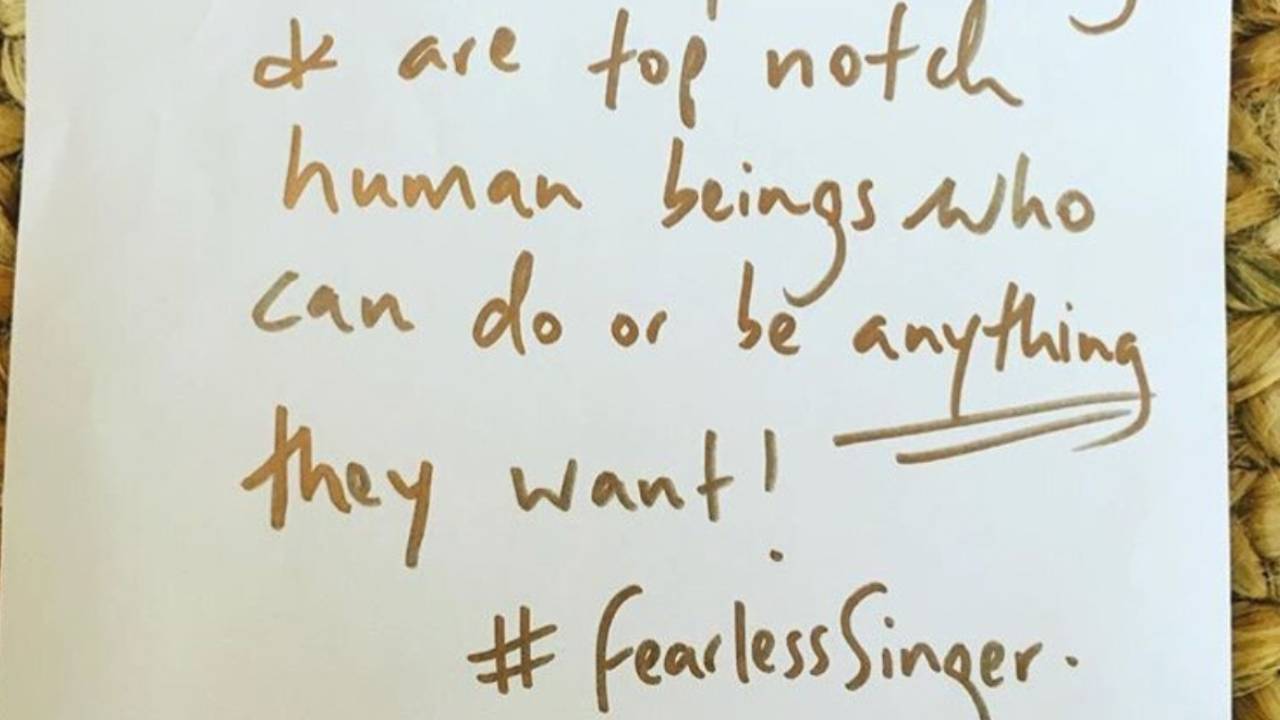 & are top notch
human beings who
can do or be anything
they want!
# fearlessSinger.